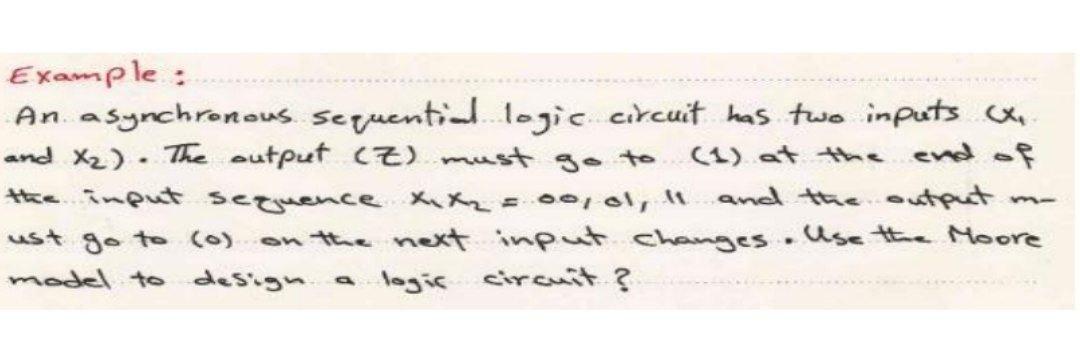 Example :
An asynchronous sequential logic circuit has two inputs (x₁
and x₂). The output (Z) must go to (1) at the end of
the input sequence x₁x₂ = 00, 01, 11 and the output m-
ust go to (0) on the next input changes. Use the Moore
model to design a logic circuit ?